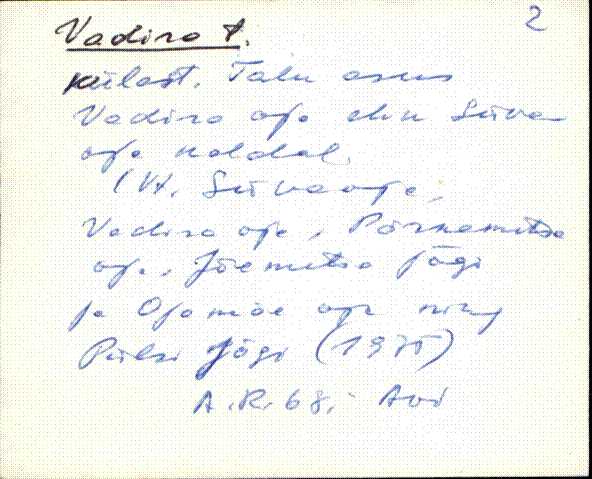 2
Vadiro t.
külast. Talu asus
Vadiro oja ehk Sürva
oja kaldal.
(Vt. Sürvaoja,
Vadiro oja, Pärnametsa
oja, Jõemetsa jõgi
ja Ojamäe oja ning
Piilsi jõgi (1975)
A.R. 68, Avi